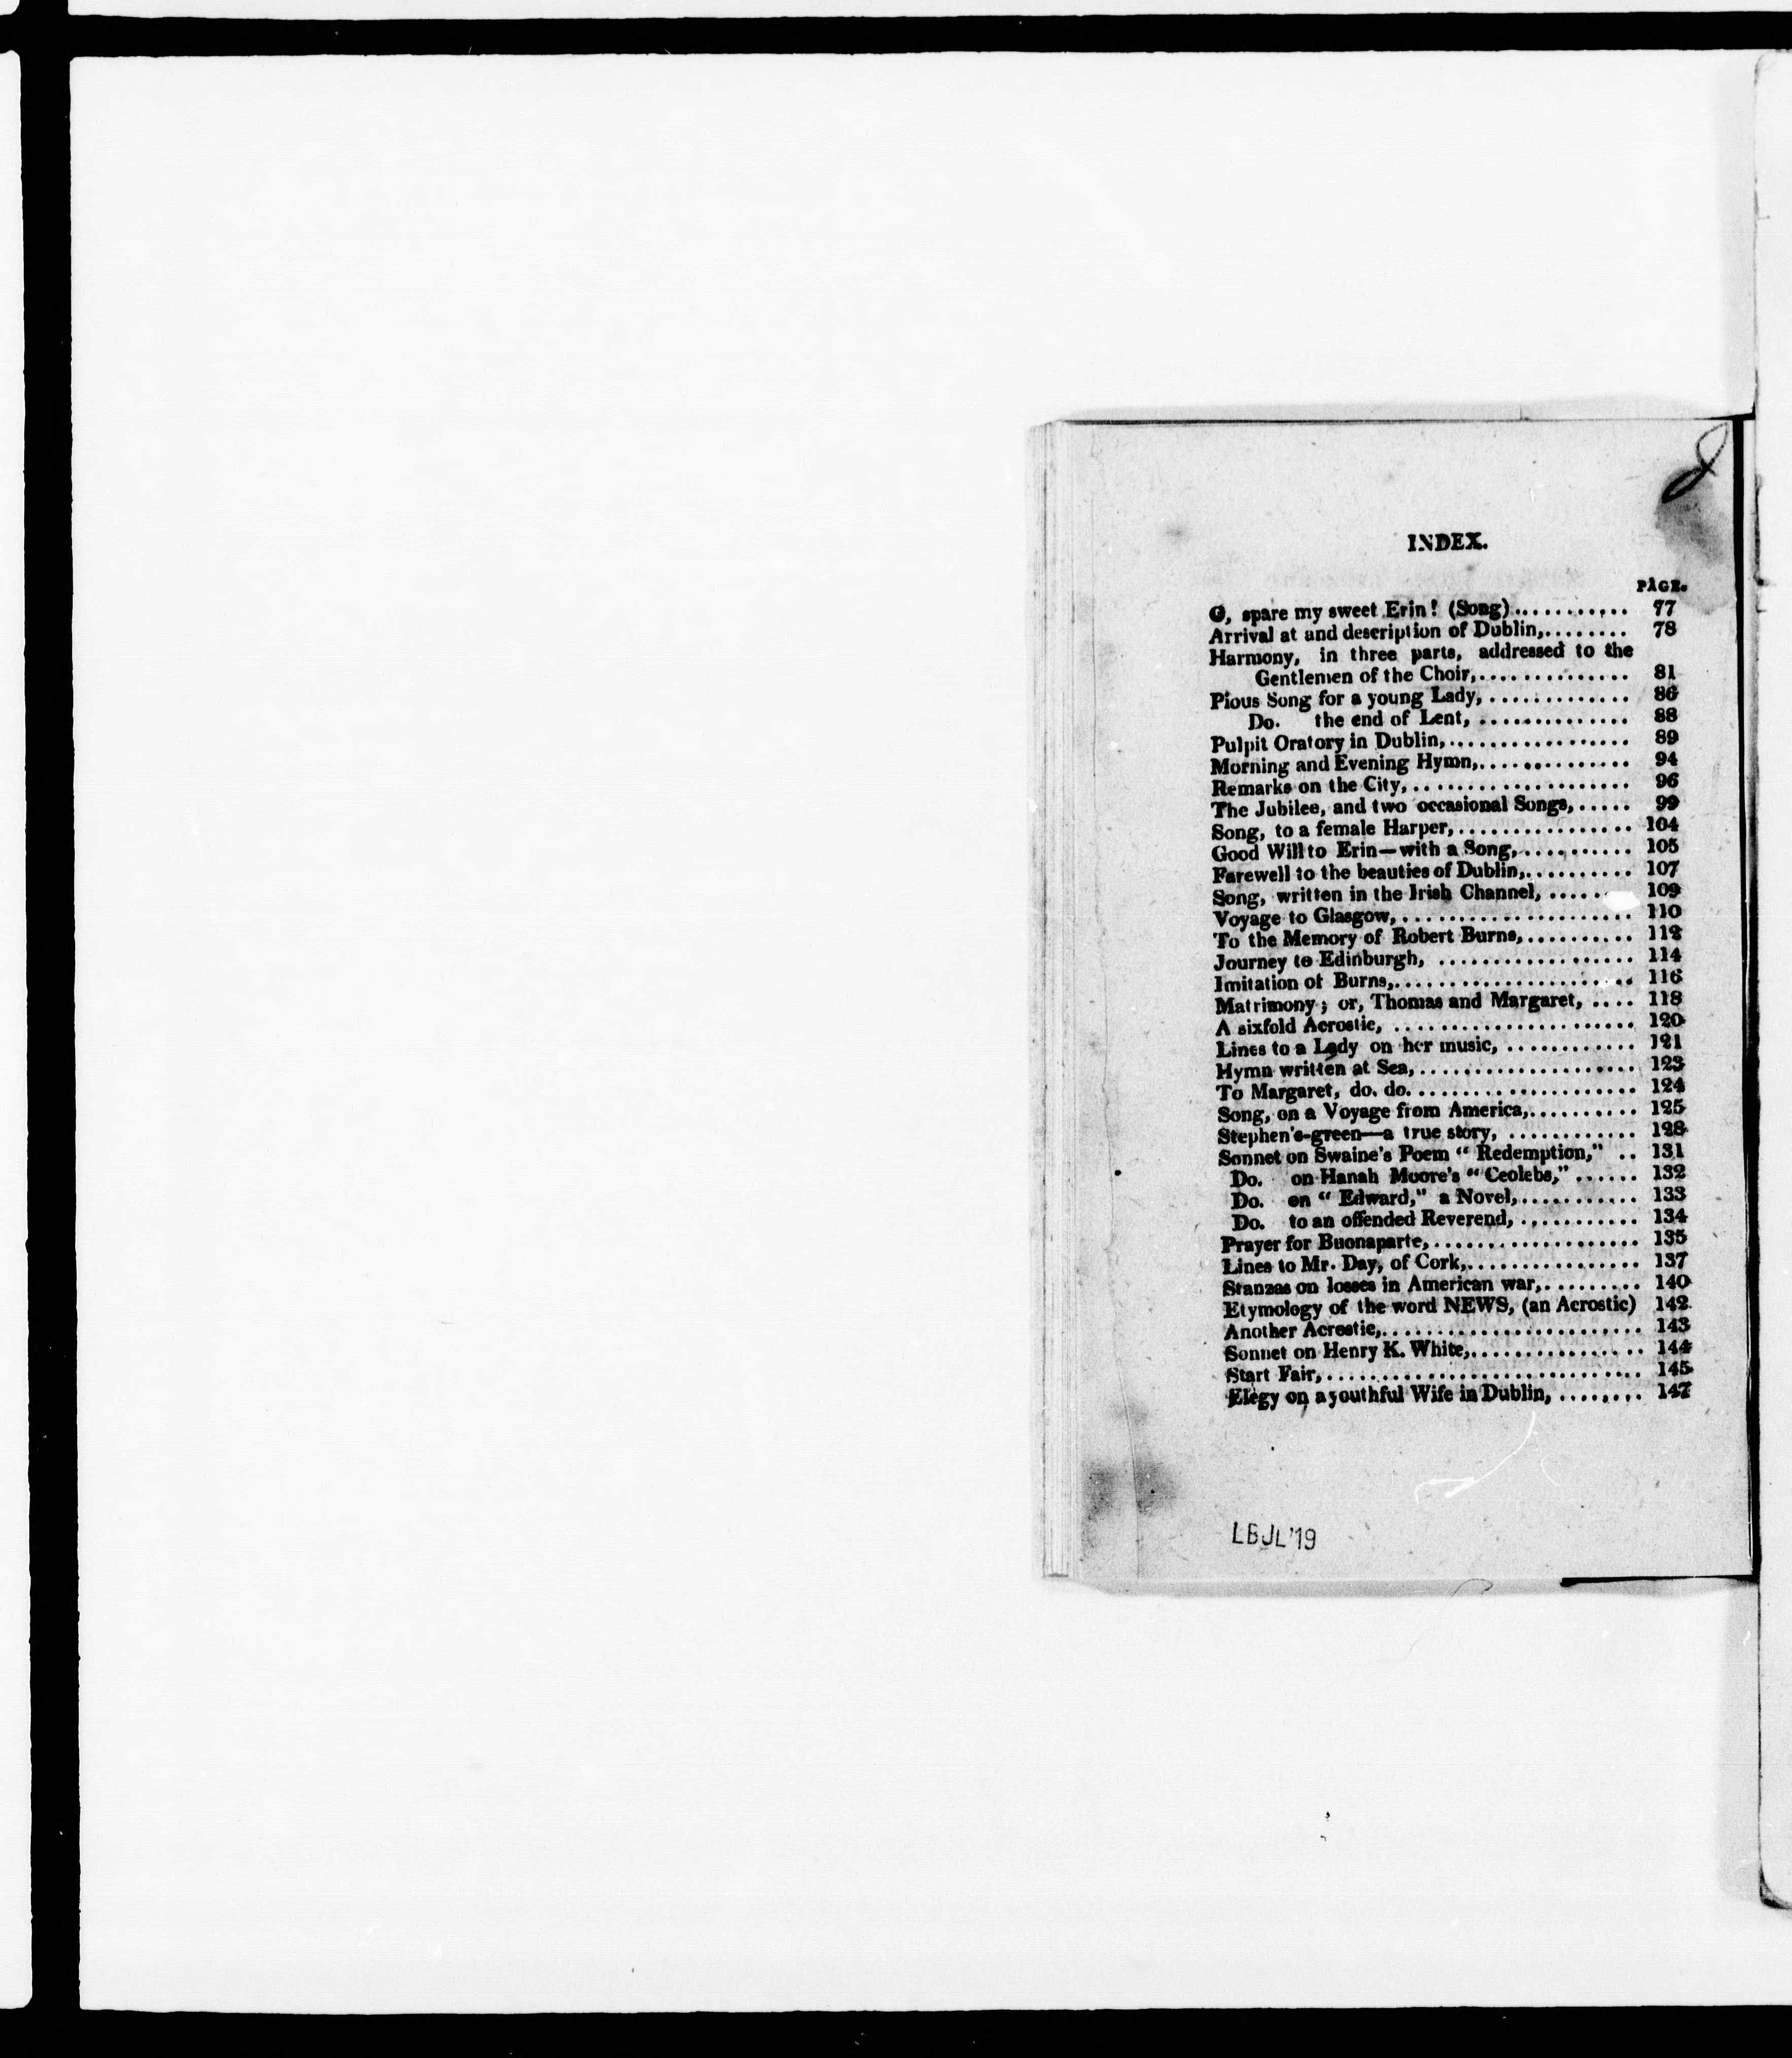 INDEX.
PAGE.
O, spare my sweet Erin! (Song)........... 77
Arrival at and description of Dublin,........ 78
Harmony, in three parts, addressed to the
Gentlemen of the Choir,.............. 81
Pious Song for a young Lady,............. 86
Do. the end of Lent, .............. 88
Pulpit Oratory in Dublin,................. 89
Morning and Evening Hymn,.............. 94
Remarks on the City,..................... 96
The Jubilee, and two occasional Songs,..... 99
Song, to a female Harper,................ 104
Good Will to Erin—with a Song,.......... 105
Farewell to the beauties of Dublin,.......... 107
Song, written in the Irish Channel, ...... 109
Voyage to Glasgow,...................... 110
To the Memory of Robert Burns,.......... 112
Journey to Edinburgh, .................. 114
Imitation of Burns,....................... 116
Matrimony; or, Thomas and Margaret, .... 118
A sixfold Acrostic, ....................... 120
Lines to a Lady on her music, ............ 121
Hymn written at Sea,..................... 123
To Margaret, do. do...................... 124
Song, on a Voyage from America,.......... 125
Stephen's-green—a true story, ............ 128
Sonnet on Swaine's Poem "Redemption," .. 131
Do. on Hanah Moore's "Ceolebs,"...... 132
Do. on "Edward," a Novel,........... 133
Do. to an offended Reverend, ........... 134
Prayer for Buonaparte,.................... 135
Lines to Mr. Day, of Cork,................ 137
Stanzas on losses in American war,......... 140
Etymology of the word NEWS, (an Acrostic) 142
Another Acrostic,......................... 143
Sonnet on Henry K. White,................ 144
Start Fair,............................... 145
Elegy on a youthful Wife in Dublin, ........ 147
LBJL'19